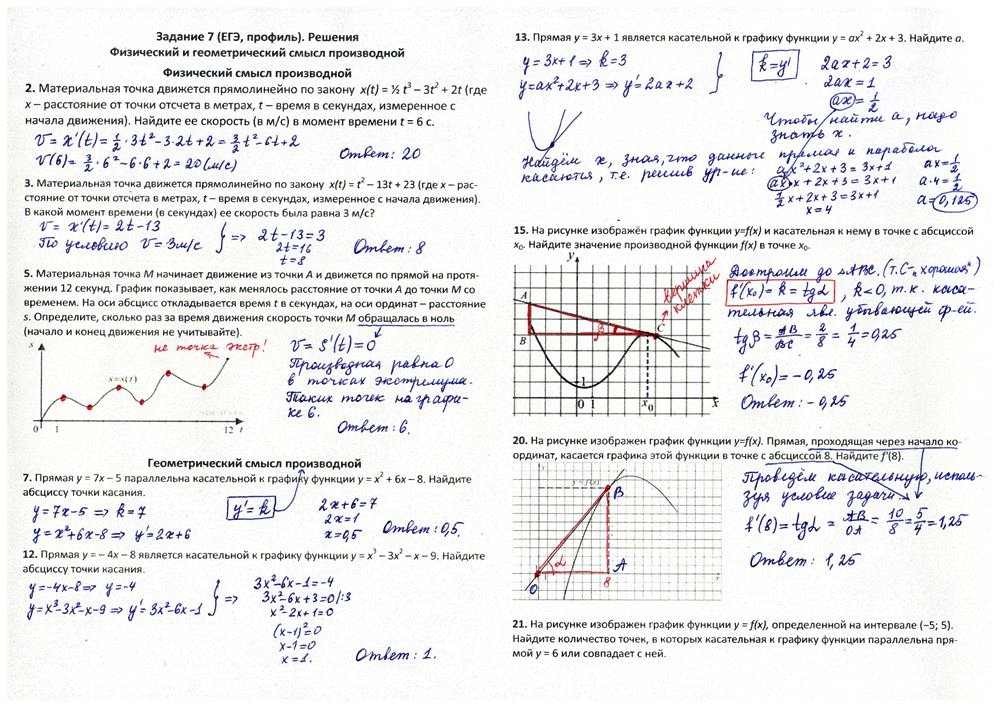 Задание 7 (ЕГЭ, профиль). Решения
Физический и геометрический смысл производной
Физический смысл производной
2. Материальная точка движется прямолинейно по закону x(t) = ½ t³ – 3t² + 2t (где
x – расстояние от точки отсчета в метрах, t – время в секундах, измеренное с
начала движения). Найдите ее скорость (в м/с) в момент времени t = 6 с.
V = x'(t) = 1/2 · 3t² - 3·2t + 2 = 3/2 t² - 6t + 2
V(6) = 3/2 · 6² - 6·6 + 2 = 20 (м/с)
Ответ: 20
3. Материальная точка движется прямолинейно по закону x(t) = t² – 13t + 23 (где x – рас-
стояние от точки отсчета в метрах, t – время в секундах, измеренное с начала движения).
В какой момент времени (в секундах) ее скорость была равна 3 м/с?
V = x'(t) = 2t - 13
По условию V = 3м/с
} => 2t - 13 = 3
2t = 16
t = 8
Ответ: 8
5. Материальная точка M начинает движение из точки A и движется по прямой на протя-
жении 12 секунд. График показывает, как менялось расстояние от точки A до точки M со
временем. На оси абсцисс откладывается время t в секундах, на оси ординат – расстояние
s. Определите, сколько раз за время движения скорость точки M обращалась в ноль
(начало и конец движения не учитывайте).
s
не точка экстр!
s=s(t)
0 1 12 t
V = S'(t) = 0
Производная равна 0
в точках экстремума.
Таких точек на графи-
ке 6.
Ответ: 6.
Геометрический смысл производной
7. Прямая y = 7x – 5 параллельна касательной к графику функции y = x² + 6x – 8. Найдите
абсциссу точки касания.
y = 7x - 5 => k = 7
y = x² + 6x - 8 => y' = 2x + 6
y' = k
2x + 6 = 7
2x = 1
x = 0,5
Ответ: 0,5.
12. Прямая y = – 4x – 8 является касательной к графику функции y = x³ – 3x² – x – 9. Найдите
абсциссу точки касания.
y = -4x - 8 => y = -4
y = x³ - 3x² - x - 9 => y' = 3x² - 6x - 1
} =>
3x² - 6x - 1 = -4
3x² - 6x + 3 = 0 /:3
x² - 2x + 1 = 0
(x-1)² = 0
x - 1 = 0
x = 1.
Ответ: 1.
13. Прямая y = 3x + 1 является касательной к графику функции y = ax² + 2x + 3. Найдите a.
y = 3x + 1 => k = 3
y = ax² + 2x + 3 => y' = 2ax + 2
}
k = y'
2ax + 2 = 3
2ax = 1
ax = 1/2
Чтобы найти a, надо
знать x.
Найдём x, зная, что данные прямая и парабола
касаются, т.е. решив ур-ие:
ax² + 2x + 3 = 3x + 1
ax·x + 2x + 3 = 3x + 1
1/2 x + 2x + 3 = 3x + 1
x = 4
ax = 1/2
a·4 = 1/2
a = 0,125
15. На рисунке изображён график функции y=f(x) и касательная к нему в точке с абсциссой
x₀. Найдите значение производной функции f(x) в точке x₀.
y
вершина
клетки
A
β
C
B
1
0 1 x₀ x
Достроим до △ABC. (т.C - „хорошая“)
f'(x₀) = k = tgα, k<0, т.к. каса-
тельная явл. убывающей ф-ей.
tgβ = AB/BC = 2/8 = 1/4 = 0,25
f'(x₀) = -0,25
Ответ: -0,25
20. На рисунке изображен график функции y=f(x). Прямая, проходящая через начало ко-
ординат, касается графика этой функции в точке с абсциссой 8. Найдите f'(8).
y = f(x)
B
α
A
O
8
Проведём касательную, исполь-
зуя условие задачи.
f'(8) = tgα = AB/OA = 10/8 = 5/4 = 1,25
Ответ: 1,25
21. На рисунке изображен график функции y = f(x), определенной на интервале (−5; 5).
Найдите количество точек, в которых касательная к графику функции параллельна пря-
мой y = 6 или совпадает с ней.